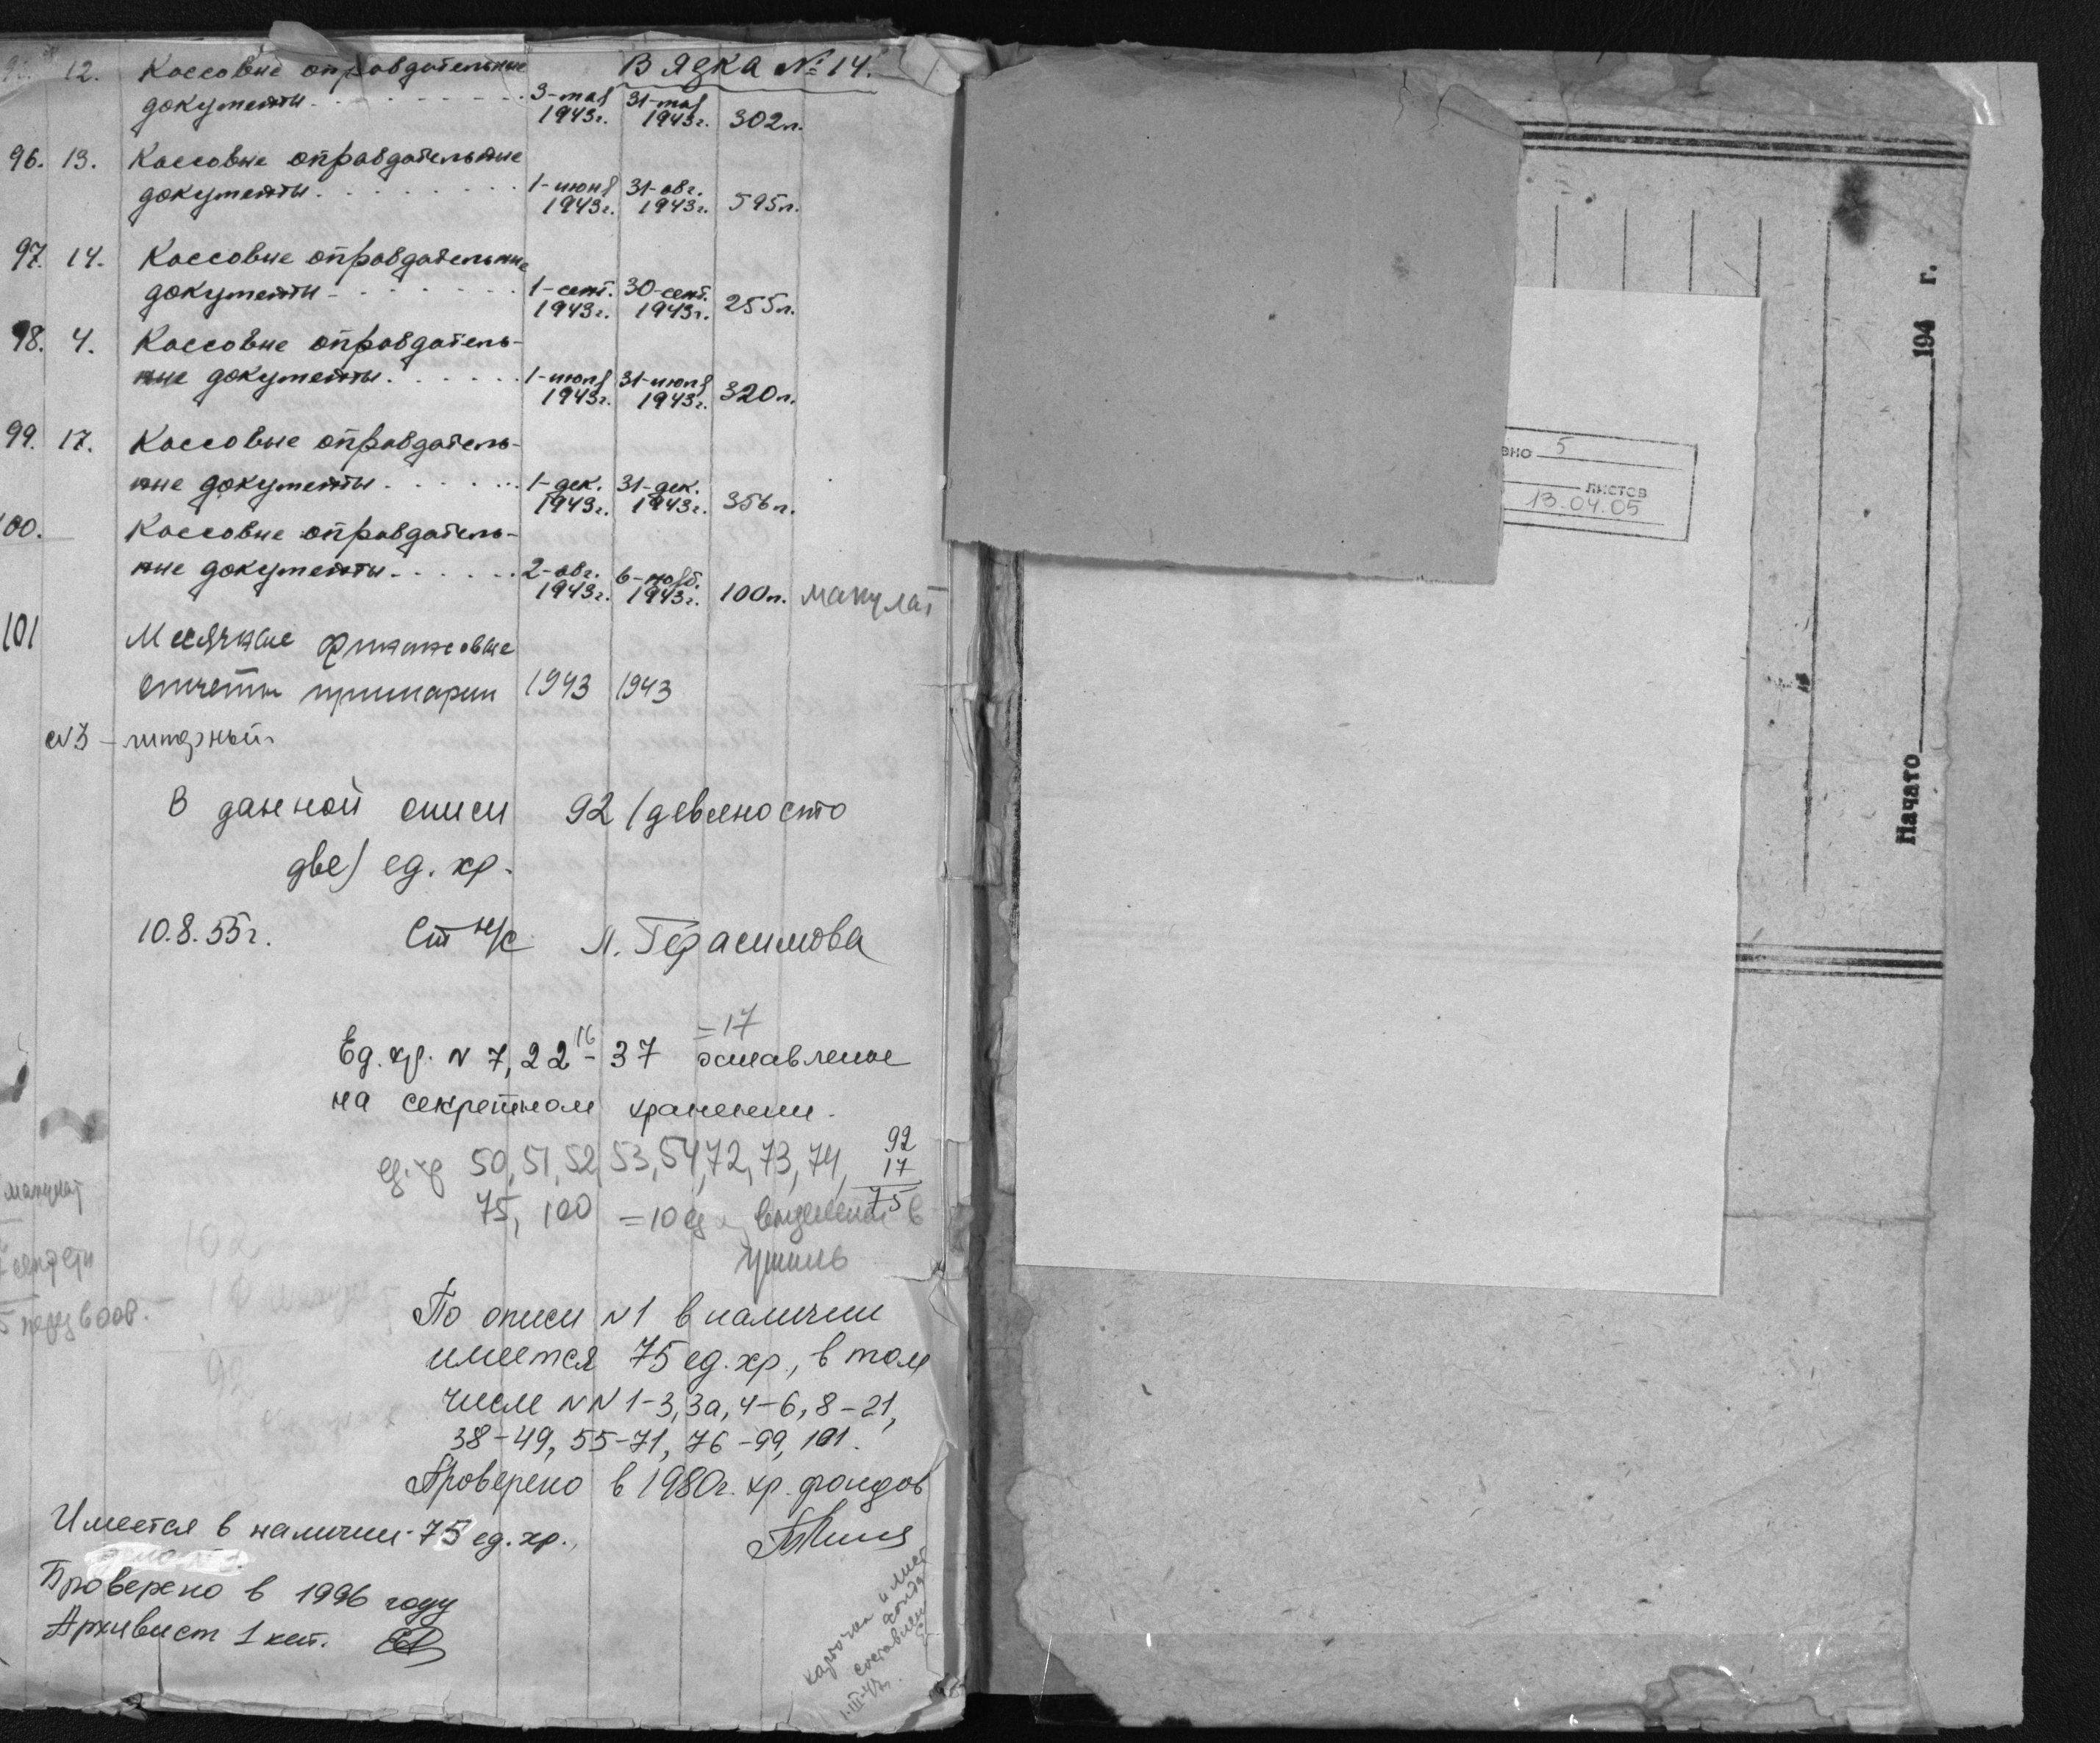 12. Кассовые оправдательные Вязка № 14.
документы 3-мая 1943г. 31-мая 1943г. 302л.
96. 13. Кассовые оправдательные
документы 1-июня 1943г. 31-авг. 1943г. 595л.
97. 14. Кассовые оправдательные
документы 1-сент. 1943г. 30-сент. 1943г. 255л.
98. 4. Кассовые оправдатель-
ные документы 1-июля 1943г. 31-июля 1943г. 320л.
99. 17. Кассовые оправдатель-
ные документы 1-дек. 1943г. 31-дек. 1943г. 356л.
100. Кассовые оправдатель-
ные документы 2-авг. 1943г. 6-нояб. 1943г. 100л. макулат
101 Месячные финансовые
отчеты примарии 1943 1943
N3 – литерный
В данной описи 92 (девяносто
две) ед. хр.
10.8.55г. Ст н/с Л. Герасимова
=17
16
Ед. хр. N 7, 22 - 37 оставлены
на секретном хранении.
ед. хр 50, 51, 52, 53, 54, 72, 73, 74,
75, 100 = 10 ед выделены в
утиль
92
17
75
макулат
102
92
По описи N1 в наличии
имеется 75 ед. хр., в том
числе NN 1-3, 3а, 4-6, 8-21,
38-49, 55-71, 76-99, 101.
Проверено в 1980г. хр. фондов
Имеется в наличии - 75 ед. хр.
Проверено в 1996 году
Архивист 1 кат.
Карточка и лист
фонда
составлен
1-III-47г.
вно 5
листов
13.04.05
Начато 194 г.